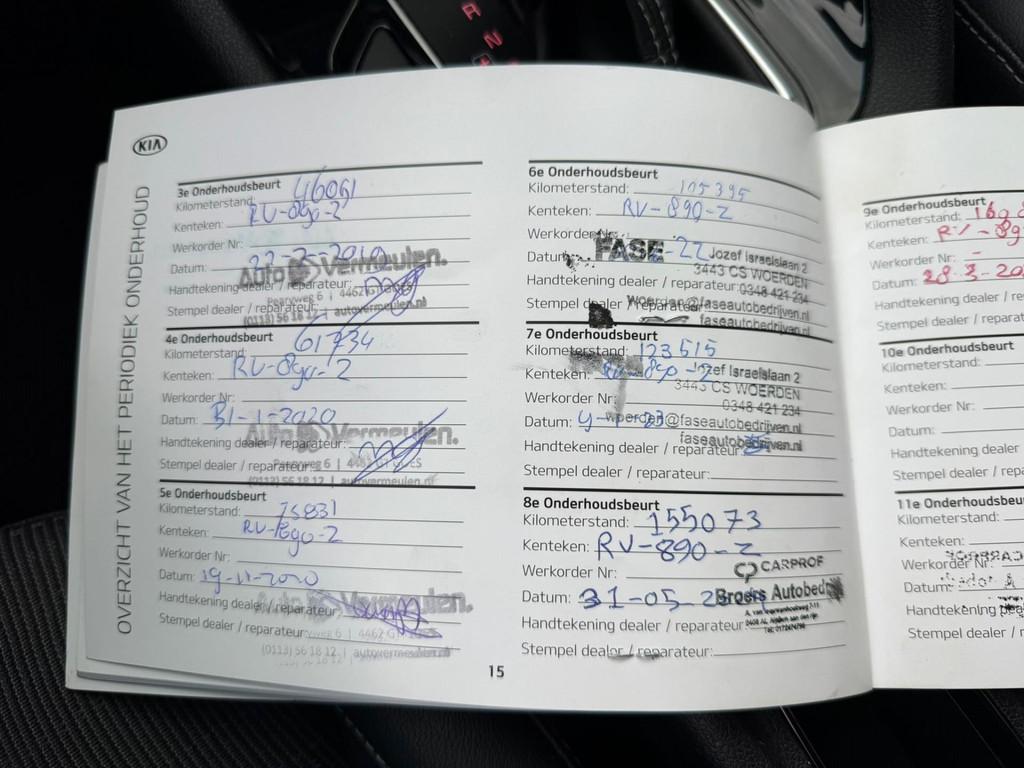 R
N
KIA
OVERZICHT VAN HET PERIODIEK ONDERHOUD
3e Onderhoudsbeurt
Kilometerstand: 46061
Kenteken: RV-890-Z
Werkorder Nr:
Datum:
Auto Vermeulen.
Handtekening dealer / reparateur:
Pearyweg 6 | 4462 GT GOES
Stempel dealer / reparateur:
(0113) 56 18 12 | autovermeulen.nl
4e Onderhoudsbeurt
Kilometerstand: 61734
Kenteken: RV-890-Z
Werkorder Nr:
Datum: 31-1-2020
Auto Vermeulen.
Handtekening dealer / reparateur:
Pearyweg 6 | 4462 GT GOES
Stempel dealer / reparateur:
(0113) 56 18 12 | autovermeulen.nl
5e Onderhoudsbeurt
Kilometerstand: 75831
Kenteken: RV-890-Z
Werkorder Nr:
Datum: 19-11-2020
Vermeulen.
Handtekening dealer / reparateur:
Stempel dealer / reparateur:
6 | 4462 GT
(0113) 56 18 12 | autovermeulen.nl
15
6e Onderhoudsbeurt
Kilometerstand: 105395
Kenteken: RV-890-Z
Werkorder Nr:
FASE
Jozef Israelslaan 2
Datum: -22
3443 CS WOERDEN
Handtekening dealer / reparateur:
0348 421 234
Stempel dealer / reparateur:
Woerden@faseautobedrijven.nl
faseautobedrijven.nl
7e Onderhoudsbeurt
Kilometerstand: 123515
Jozef Israelslaan 2
Kenteken: RV-890-Z
3443 CS WOERDEN
Werkorder Nr:
0348 421 234
Datum:
woerden@faseautobedrijven.nl
faseautobedrijven.nl
Handtekening dealer / reparateur:
Stempel dealer / reparateur:
8e Onderhoudsbeurt
Kilometerstand: 155073
Kenteken: RV-890-Z
Werkorder Nr:
CARPROF
Broers Autobed
Datum: 31-05-2
Handtekening dealer / reparateur:
Stempel dealer / reparateur:
9e Onderhoudsbeurt
Kilometerstand: 16
Kenteken: RV-89
Werkorder Nr: -
Datum: 28-3-20
Handtekening dealer / re
Stempel dealer / reparat
10e Onderhoudsbeurt
Kilometerstand:
Kenteken:
Werkorder Nr:
Datum:
Handtekening dealer
Stempel dealer / repa
11e Onderhoudsbeu
Kilometerstand:
Kenteken:
Werkorder Nr:
Datum:
Handtekening dea
Stempel dealer / r